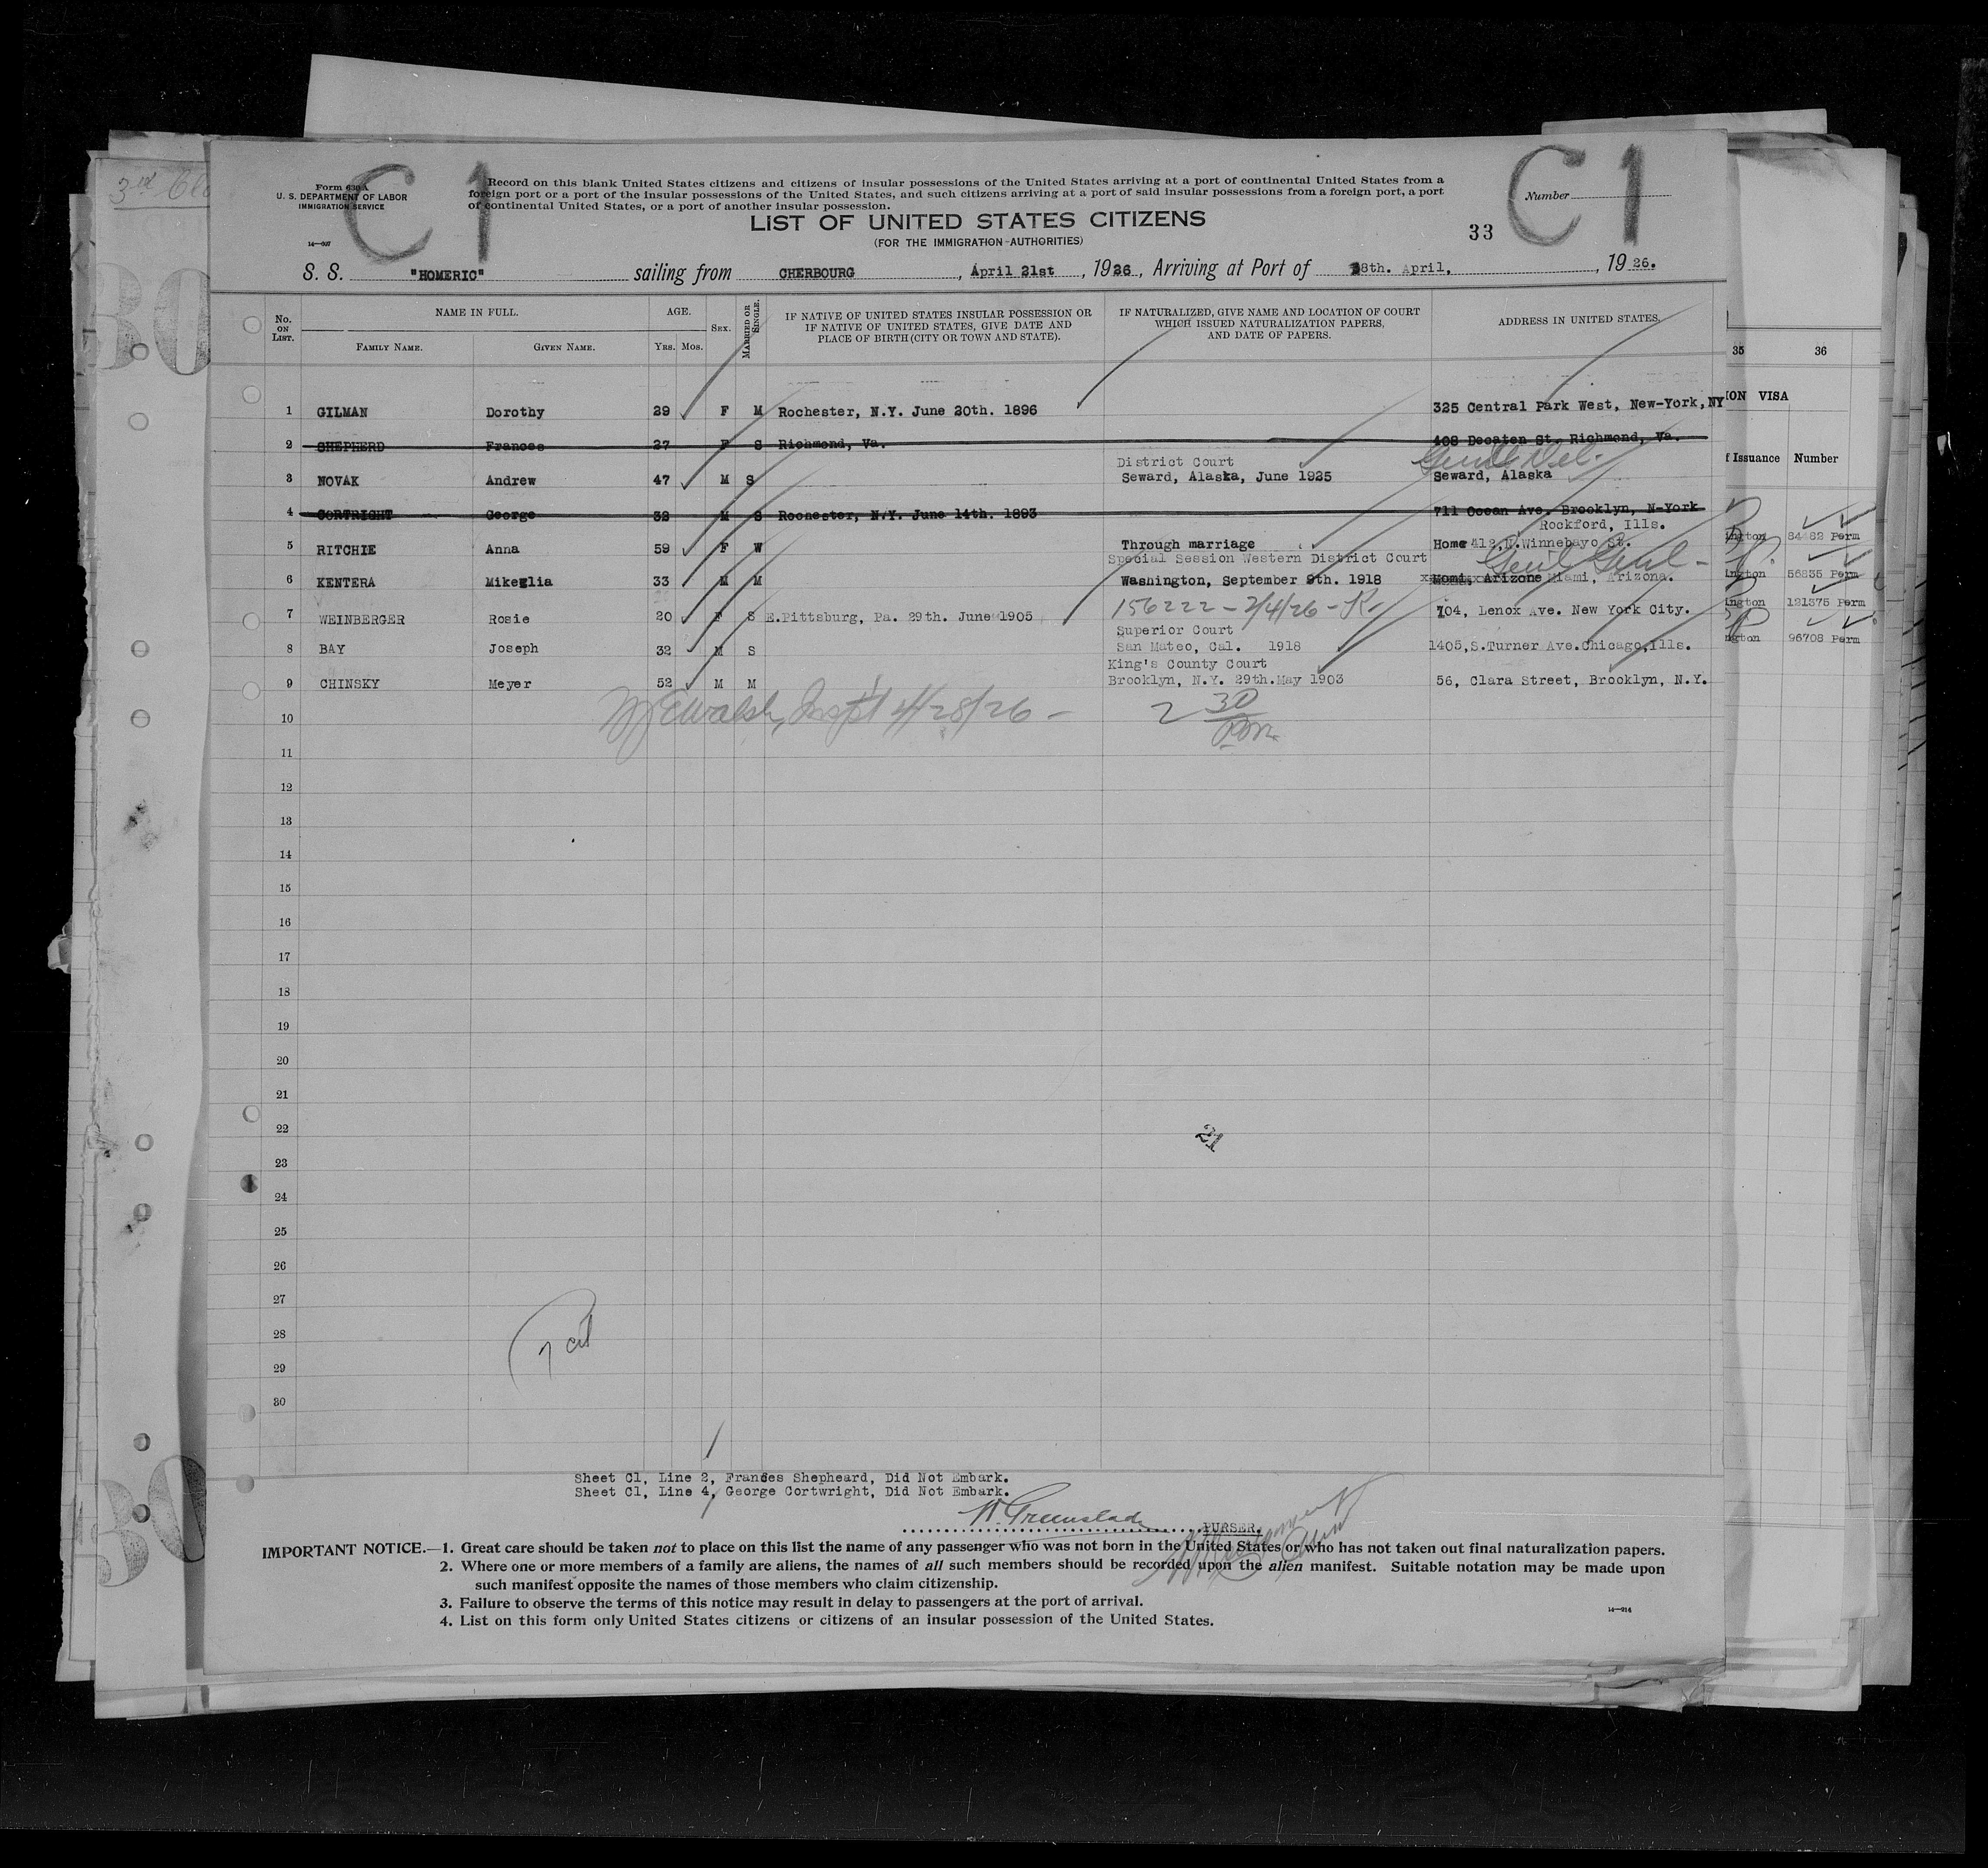 3rd
C1
C1
Form 630 A
U. S. DEPARTMENT OF LABOR
IMMIGRATION SERVICE
14—307
Record on this blank United States citizens and citizens of insular possessions of the United States arriving at a port of continental United States from a
foreign port or a port of the insular possessions of the United States, and such citizens arriving at a port of said insular possessions from a foreign port, a port
of continental United States, or a port of another insular possession.
Number
LIST OF UNITED STATES CITIZENS
(FOR THE IMMIGRATION AUTHORITIES)
33
S. S. "HOMERIC" sailing from CHERBOURG, April 21st, 1926, Arriving at Port of 28th. April, 1926.
No. ON LIST. NAME IN FULL. AGE. SEX. MARRIED OR SINGLE. IF NATIVE OF UNITED STATES INSULAR POSSESSION OR IF NATIVE OF UNITED STATES, GIVE DATE AND PLACE OF BIRTH (CITY OR TOWN AND STATE). IF NATURALIZED, GIVE NAME AND LOCATION OF COURT WHICH ISSUED NATURALIZATION PAPERS, AND DATE OF PAPERS. ADDRESS IN UNITED STATES.
FAMILY NAME. GIVEN NAME. YRS. MOS.
35 36
ION VISA
f Issuance Number
1 GILMAN Dorothy 29 F M Rochester, N.Y. June 20th. 1896 325 Central Park West, New-York, NY
2 SHEPHERD Frances 27 F S Richmond, Va. 408 Decaten St. Richmond, Va.
District Court
3 NOVAK Andrew 47 M S Seward, Alaska, June 1925 Seward, Alaska
4 CORTRIGHT George 32 M S Rochester, N.Y. June 14th. 1893 711 Ocean Ave. Brooklyn, N-York
Rockford, Ills.
5 RITCHIE Anna 59 F W Through marriage Home 412, N.Winnebayo St.
84482 Perm
Special Session Western District Court
6 KENTERA Mikeglia 33 M M Washington, September 9th. 1918 Momi, Arizone Miami, Arizona.
56835 Perm
156222 - 2/4/26 - R
7 WEINBERGER Rosie 20 F S E.Pittsburg, Pa. 29th. June 1905 704, Lenox Ave. New York City.
121375 Perm
Superior Court
8 BAY Joseph 32 M S San Mateo, Cal. 1918 1405,S.Turner Ave.Chicago,Ills.
96708 Perm
King's County Court
9 CHINSKY Meyer 52 M M Brooklyn, N.Y. 29th.May 1903 56, Clara Street, Brooklyn, N.Y.
Walsh, Inspt 4/28/26 -
2 30 P.M.
10
11
12
13
14
15
16
17
18
19
20
21
22
21
23
24
25
26
27
28
29
30
Sheet C1, Line 2, Frances Shepheard, Did Not Embark.
Sheet C1, Line 4, George Cortwright, Did Not Embark.
W. Greenslade
PURSER.
IMPORTANT NOTICE.—1. Great care should be taken not to place on this list the name of any passenger who was not born in the United States or who has not taken out final naturalization papers.
2. Where one or more members of a family are aliens, the names of all such members should be recorded upon the alien manifest. Suitable notation may be made upon
such manifest opposite the names of those members who claim citizenship.
3. Failure to observe the terms of this notice may result in delay to passengers at the port of arrival.
4. List on this form only United States citizens or citizens of an insular possession of the United States.
14—214